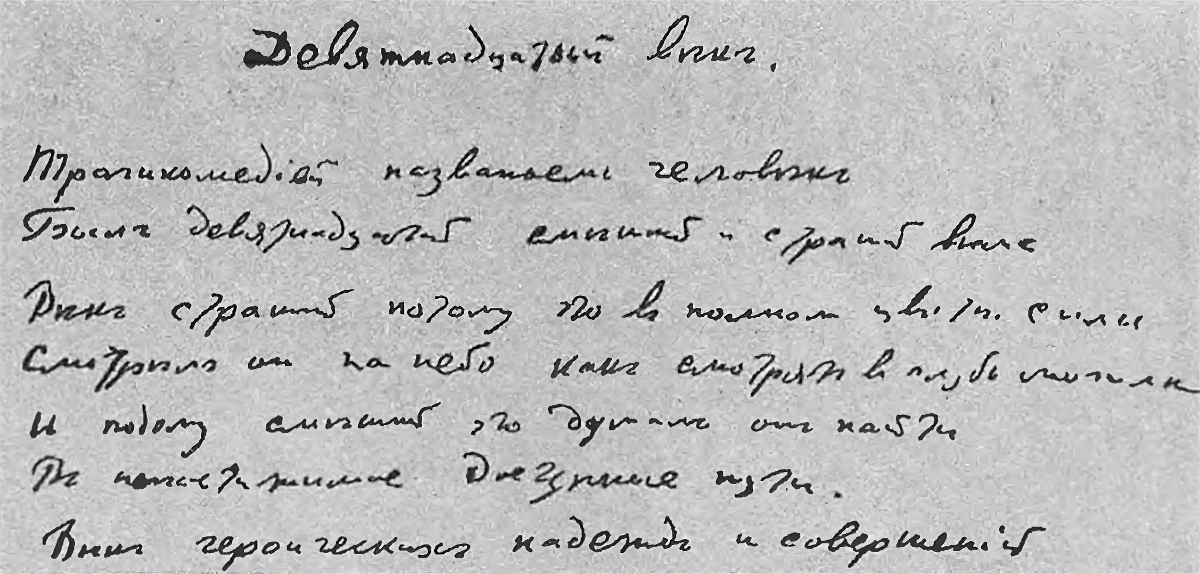 Девятнадцатый вѣкъ.
Трагикомедіей названъ человѣкъ
Былъ девятнадцатый смѣшной и страшный вѣкъ
Вѣкъ страшный потому что въ полномъ цвѣтѣ силы
Смотрѣлъ он на небо какъ смотрятъ в глубь могилы
И потому смѣшной что думалъ онъ найти
Въ недостижимое доступные пути.
Вѣкъ героическихъ надеждъ и совершеній